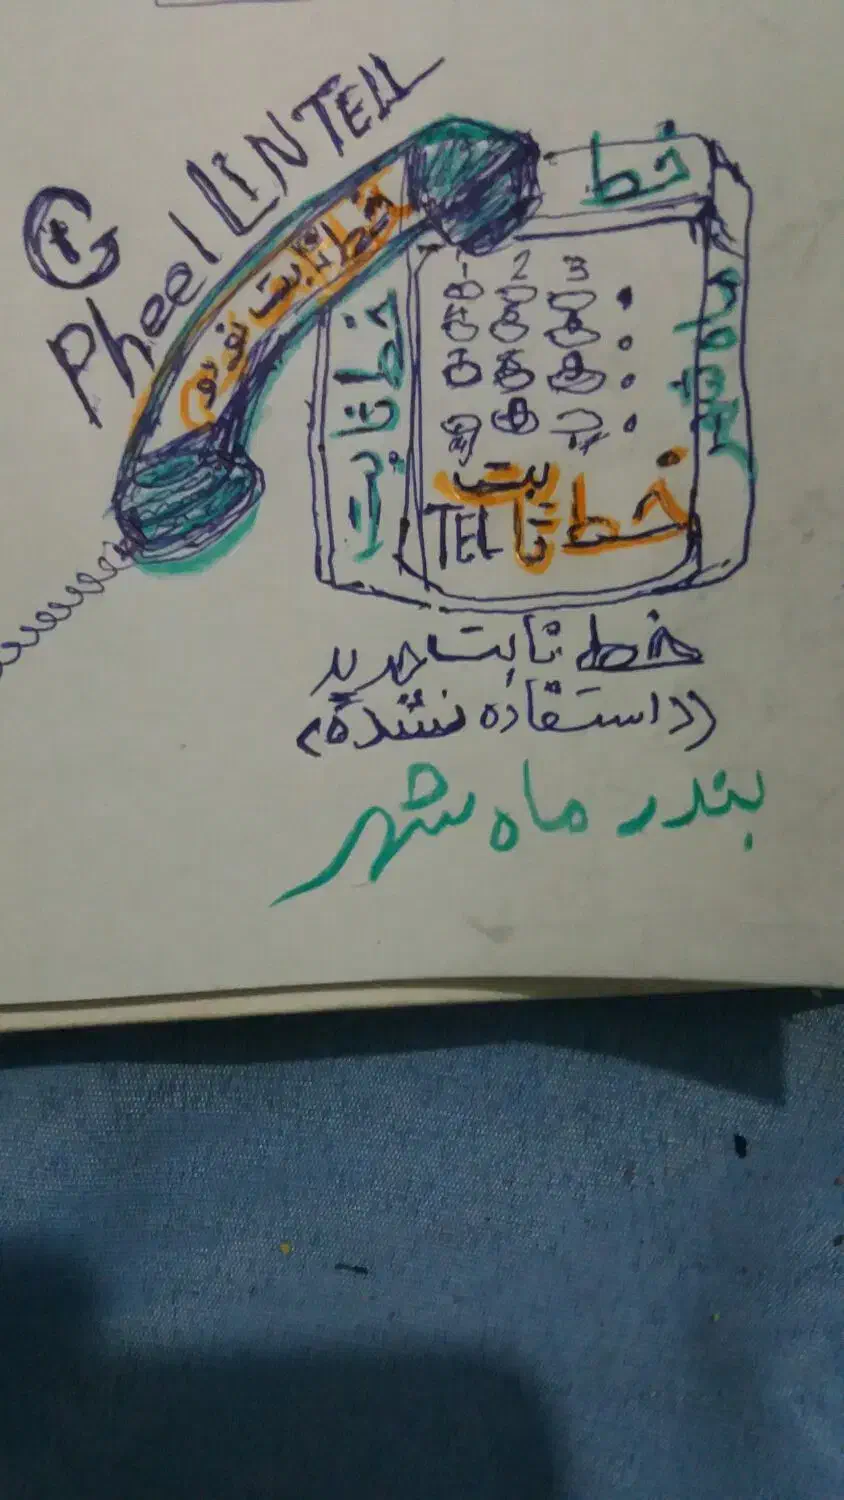 Pheel LINTELL
خط ثابت نو نو
خط
خط ثابت
1 2 3
خط ثا بت
TEL
خط ثابت جدید
((استفاده نشده))
بندر ماه شهر